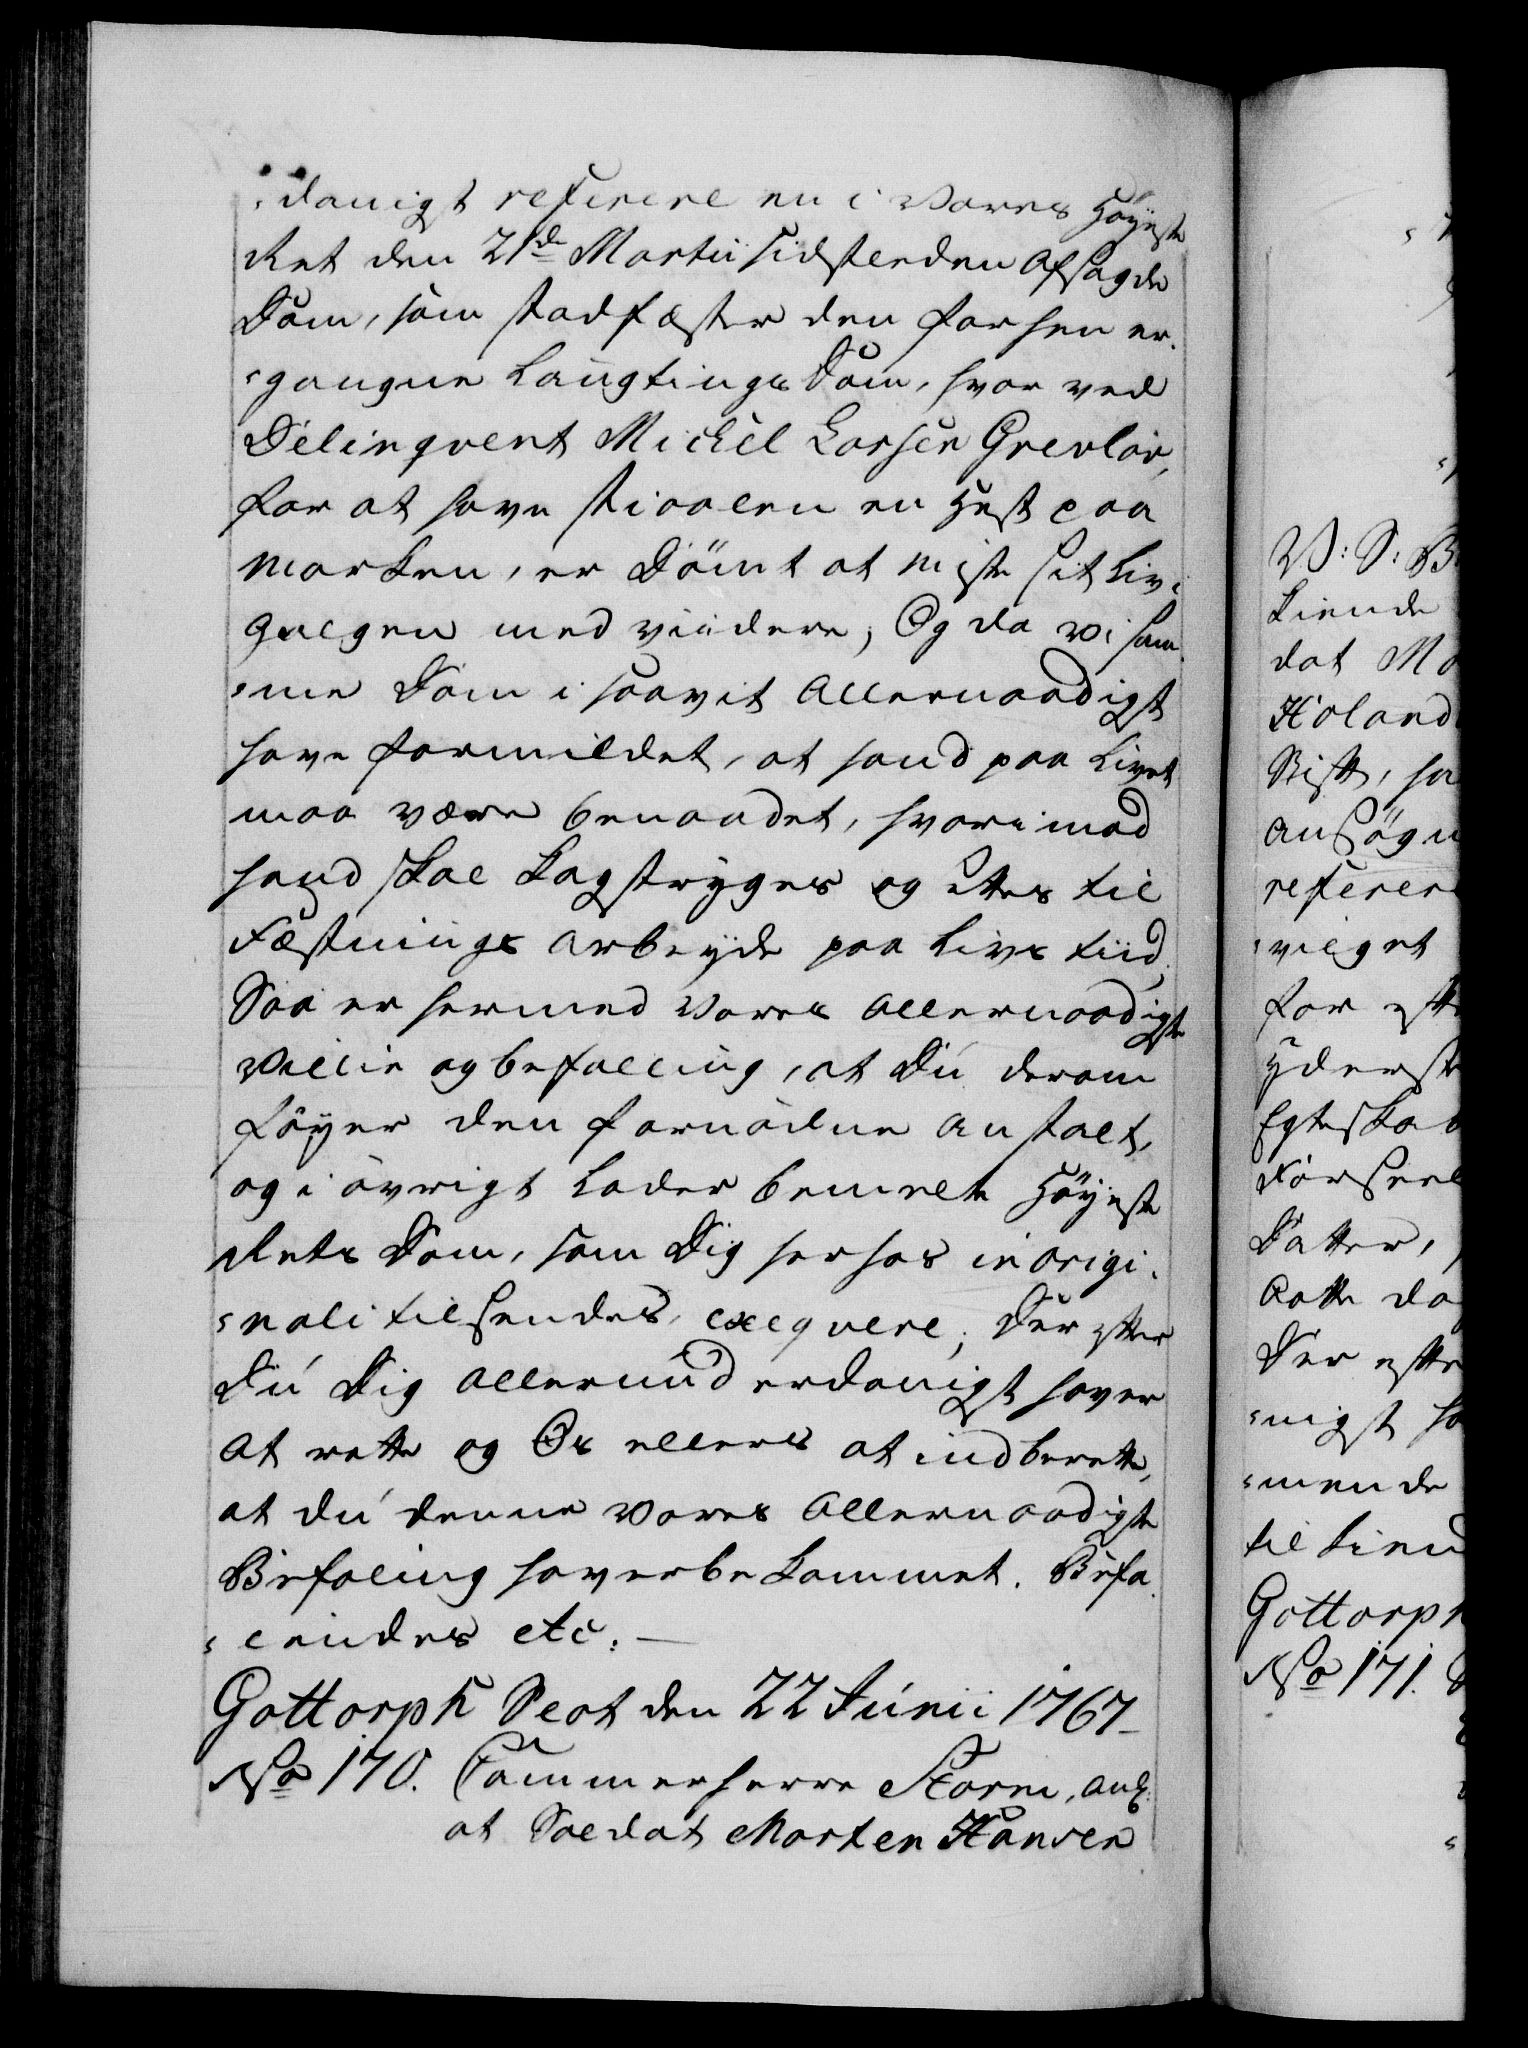 danigst referere en i Vores Höyeste
Ret den 21de Martii sidstleeden Afsagde
Dom, som stadfæster den forhen er-
gangne Laugtings Dom, hvor ved
Delinqvent Mickel Larsen Grevlor,
for at have stiaalen en Hest paa
Marken, er Dömt at miste sit Liv i
Galgen med viidere; Og da vi sam-
me Dom i saavit Allernaadigst
have formildet, at hand paa Livet
maa være benaadet, hvorimod
hand skal Kagstryges og ættes til
Fæstnings Arbeyde paa Livs tiid,
Saa er hermed Vores Allernaadigste
Villie og befalling, at Du derom
föyer den fornödne Anstalt,
og i övrigt Lader bemelte Höyeste
Rets Dom, som Dig herhos in origi-
nali tilsendes, exeqvere; Der efter
Du Dig Allerunderdanigst haver
At rette og Os ellers at indberette,
at du denne Vores Allernaadigste
Befaling haver bekommet. Befa-
lendes etc: —
Gottorph Slot den 22 Junii 1767
No 170. Cammerherre Storm, ang:
at Soldat Morten Hansen
V: S: B
kiende
dat Mo
Höland
Bist, ha
Ansögn
referer
vilget
for eft
yderst
Egteskab
Forseel
Datter,
Aatte da
Der efte
nigst ha
mende
til kiend
Gottorph
No 171.